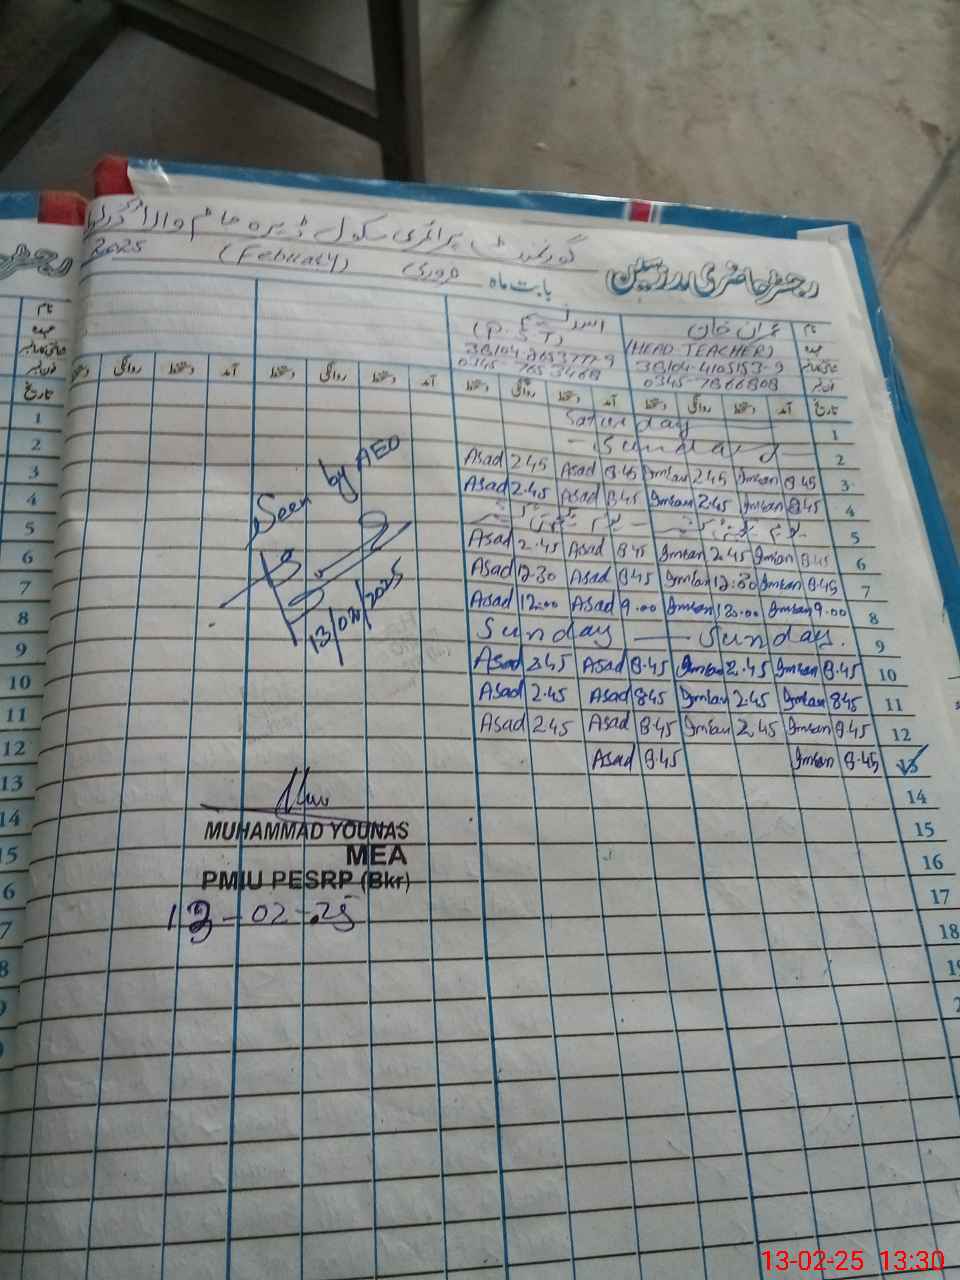 گورنمنٹ پرائمری سکول ڈیرہ حاکم والا
رجسٹر حاضری مدرسین بابت ماہ فروری (February) 2025
نام عمران خان اسد
عہدہ (HEAD TEACHER) (P.S.T)
38104-4105153-9
0345-7866808 0345-7653468
تاریخ آمد دستخط روانگی دستخط آمد دستخط روانگی دستخط آمد دستخط روانگی دستخط آمد دستخط روانگی دستخط
1 Saturday
2 Sunday
3 8.45 Imran 2.45 Imran 8.45 Asad 2.45 Asad
4 8.45 Imran 2.45 Imran 8.45 Asad 2.45 Asad
5
6 8.45 Imran 2.45 Imran 8.45 Asad 2.45 Asad
7 8.45 Imran 12:30 Imran 8.45 Asad 12.30 Asad
8 9.00 Imran 12:00 Imran 9.00 Asad 12.00 Asad
9 Sunday — Sunday.
10 8.45 Imran 2.45 Imran 8.45 Asad 2.45 Asad
11 8.45 Imran 2.45 Imran 8.45 Asad 2.45 Asad
12 8.45 Imran 2.45 Imran 8.45 Asad 2.45 Asad
13 8.45 Imran 8.45 Asad
14
15
16
17
18
Seen by AEO
13/02/2025
MUHAMMAD YOUNAS
MEA
PMIU PESRP (Bkr)
13-02-25
13-02-25 13:30